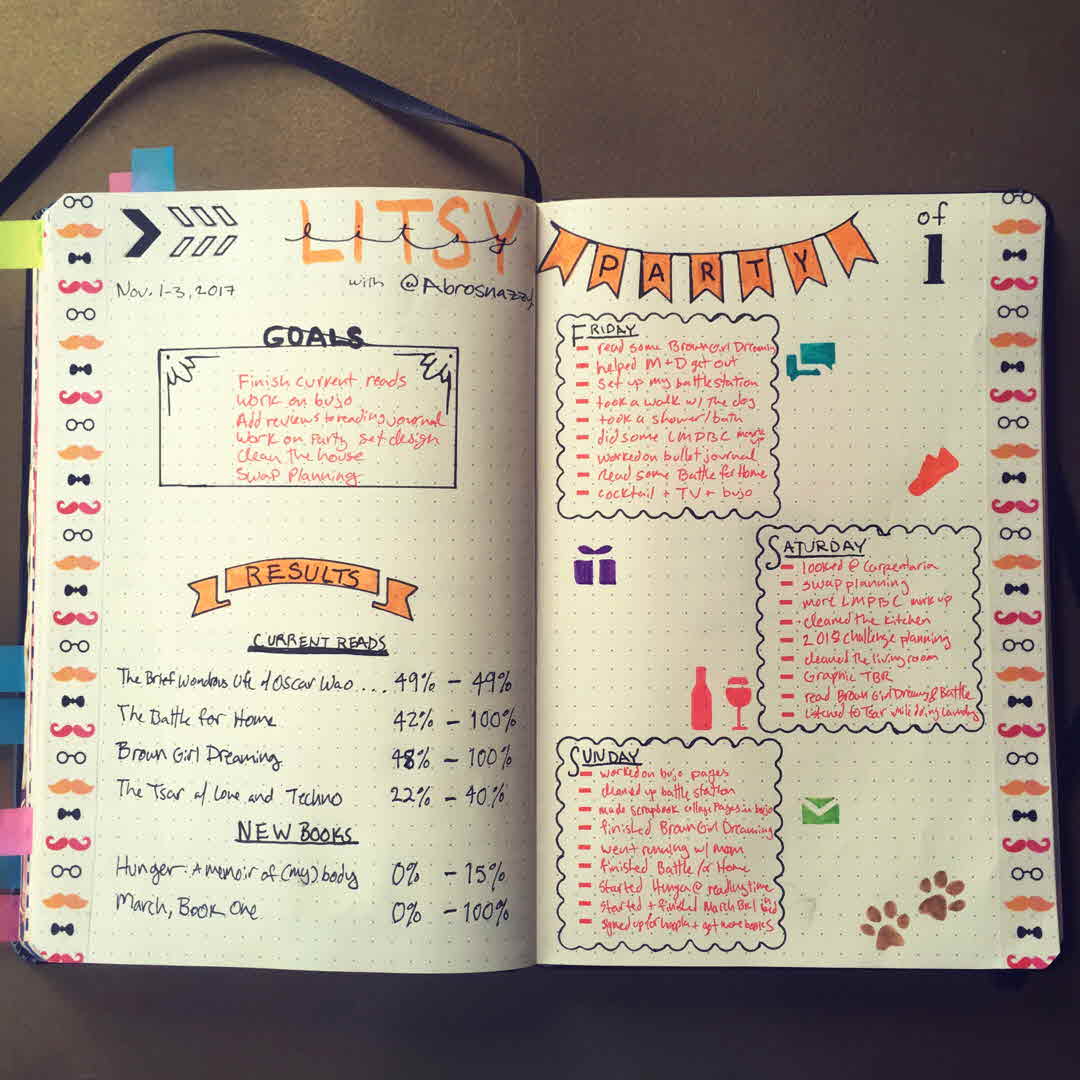 LITSY
litsy
PARTY
of
1
Nov. 1-3, 2017
with @Abrosnazzy
GOALS
Finish current reads
Work on bujo
Add reviews to reading journal
Work on Party set design
Clean the house
Swap Planning
RESULTS
CURRENT READS
The Brief Wondrous Life of Oscar Wao.... 49% - 49%
The Battle for Home 42% - 100%
Brown Girl Dreaming 48% - 100%
The Tsar of Love and Techno 22% - 40%
NEW BOOKS
Hunger: A memoir of (my) body 0% - 15%
March, Book One 0% - 100%
FRIDAY
- read some Brown Girl Dreaming
- helped M + D get out
- set up my battle station
- took a walk w/ the dog
- took a shower/bath
- did some LMPBC mark up
- worked on bullet journal
- read some Battle for Home
- cocktail + TV + bujo
SATURDAY
- looked @ Carpentaria
- swap planning
- more LMPBC mark up
- cleaned the kitchen
- 2018 challenge planning
- cleaned the living room
- Graphic TBR
- read Brown Girl Dreaming & Battle
- Listened to Tsar while doing laundry
SUNDAY
- worked on bujo pages
- cleaned up battle station
- made scrapbook collage pages in bujo
- finished Brown Girl Dreaming
- went running w/ mom
- finished Battle for Home
- started Hunger @ reading time
- started + finished March Bk 1
- signed up for hoopla + got more books